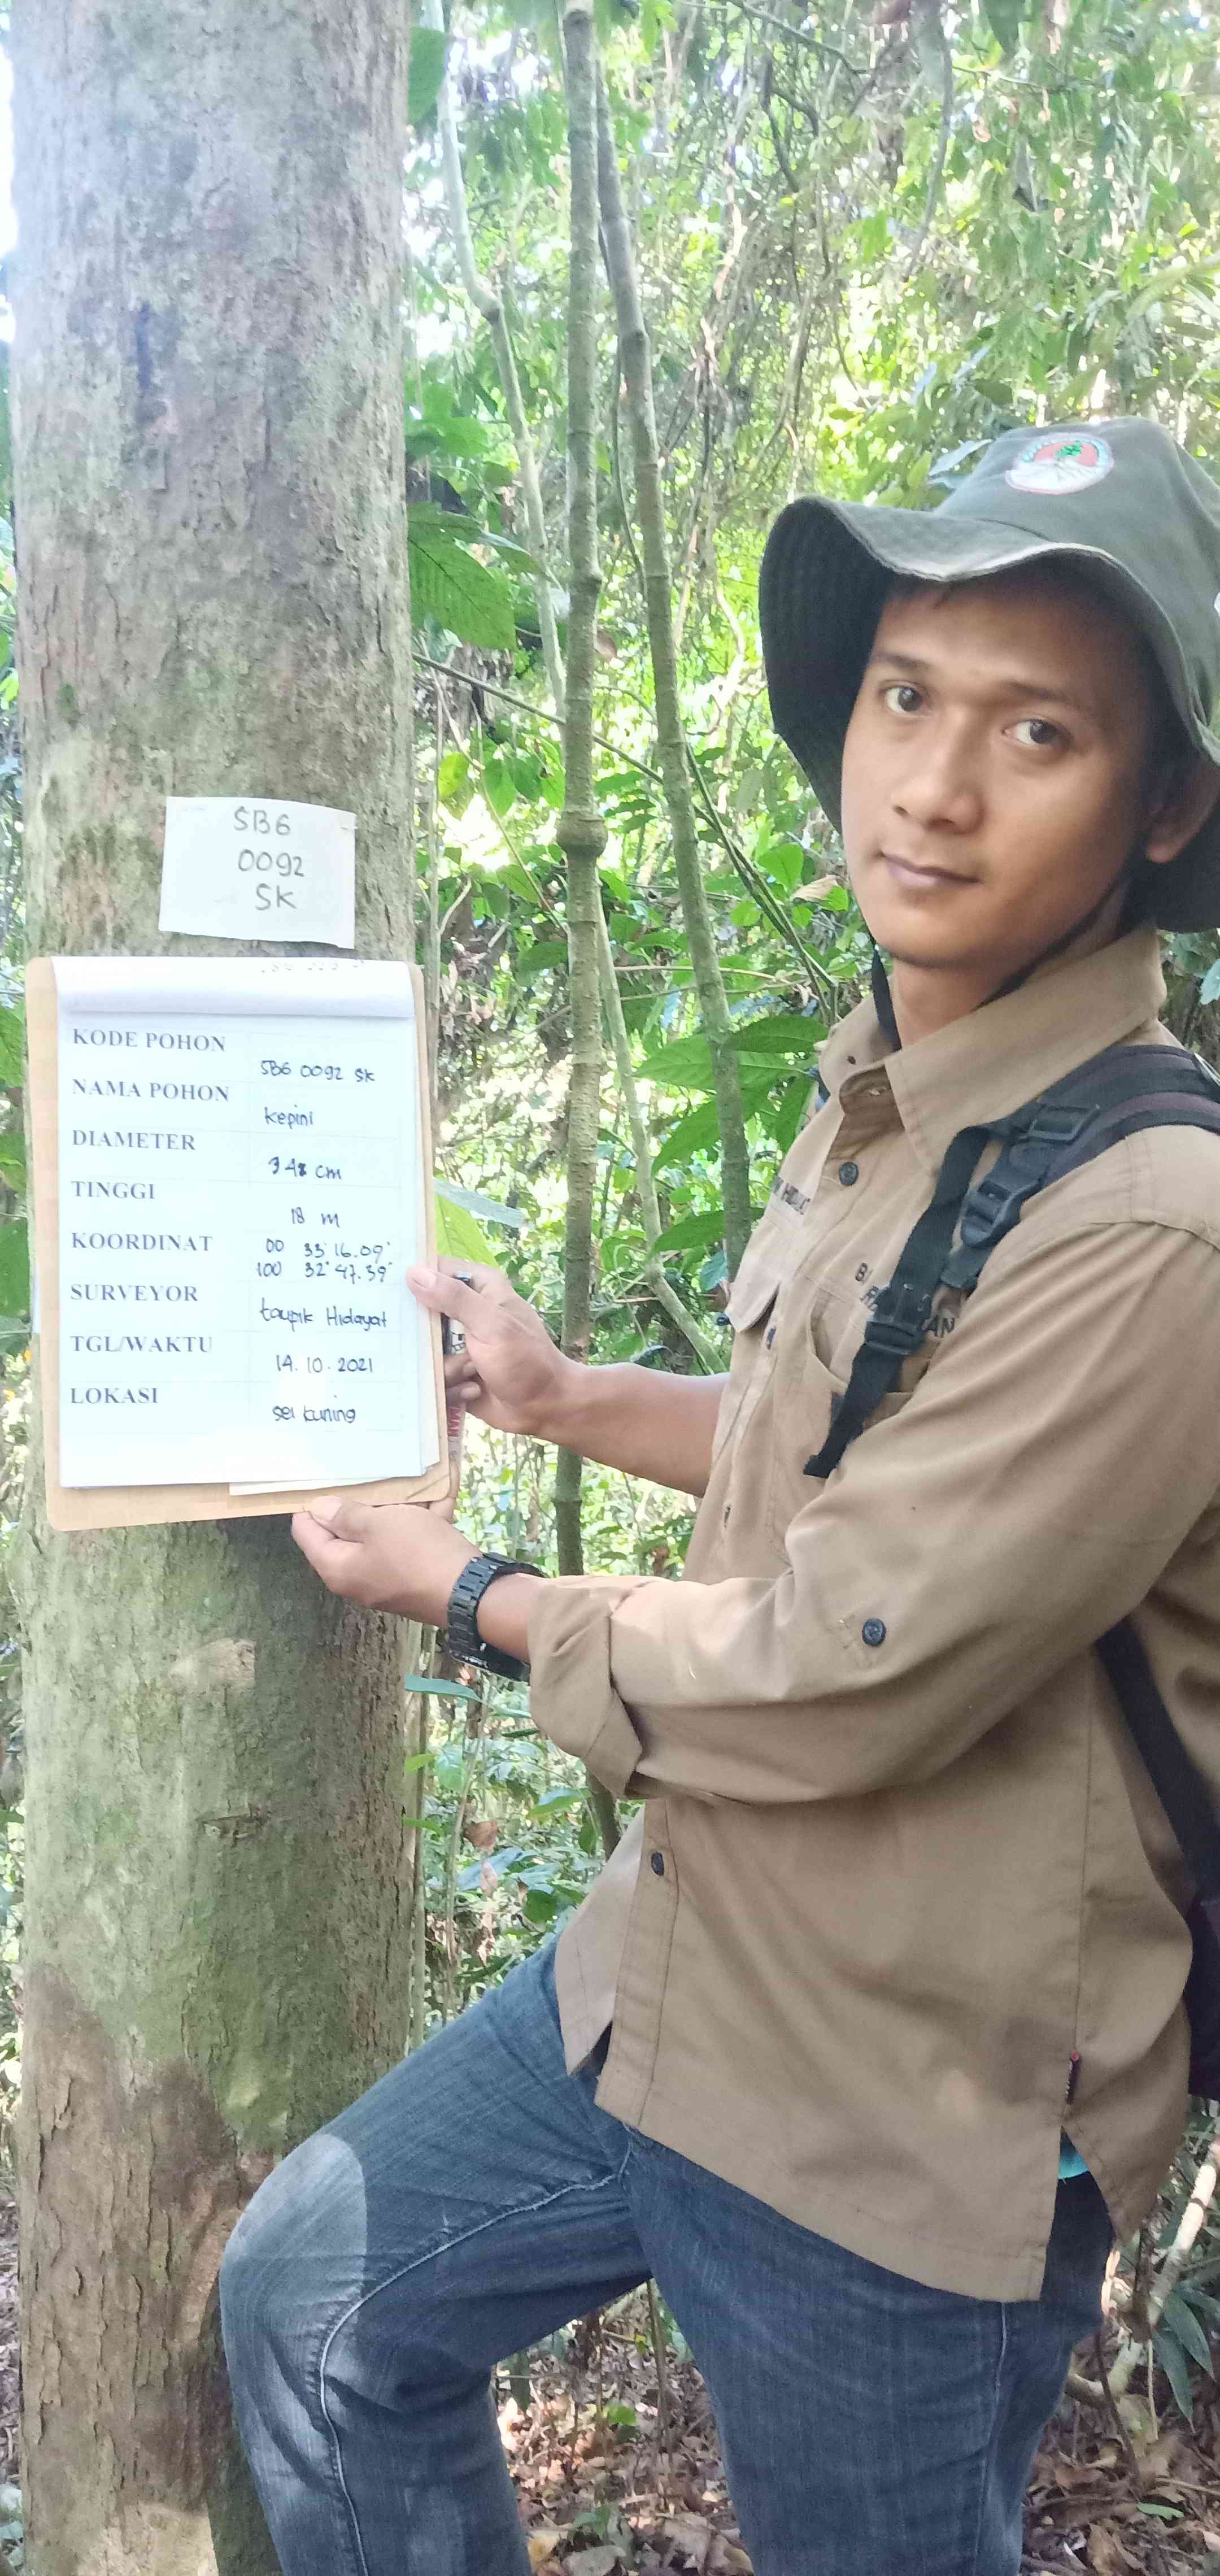 SB6
0092
SK
KODE POHON
SB6 0092 SK
NAMA POHON
kepini
DIAMETER
cm
TINGGI
18 m
KOORDINAT
00 33' 16.09"
100 32' 47.39"
SURVEYOR
taupik Hidayat
TGL/WAKTU
14.10.2021
LOKASI
sei kuning